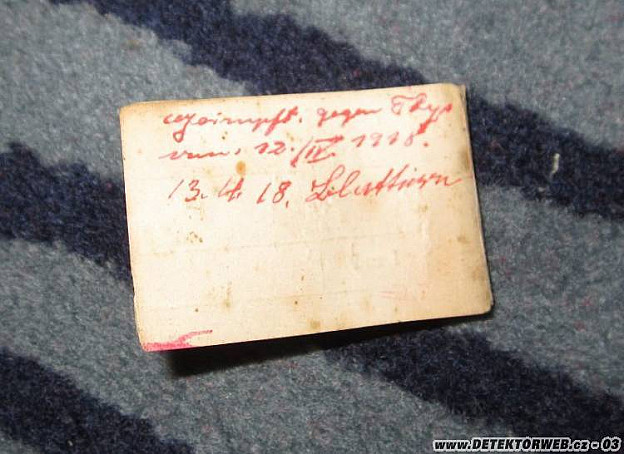 Geimpft. gegen Typ
vom. 12./IV. 1918.
13. 4. 18.
www.DETEKTORWEB.cz - 03